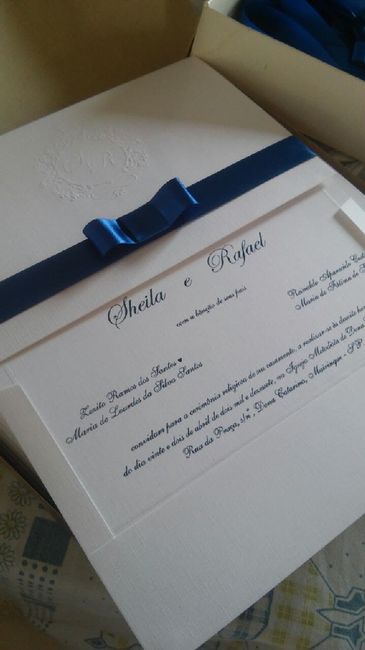 Sheila e Rafael
com a bênção de seus pais
Zezito Ramos dos Santos ♥
Maria de Lourdes da Silva Santos
Ronaldo Aparecido
Maria de Fátima de
convidam para a cerimônia religiosa de seu casamento, a realizar-se às dezoito
do dia vinte e dois de abril de dois mil e dezoito, na Igreja Metodista de Dona
Rua da Praça, s/nº, Dona Catarina, Mairinque - SP